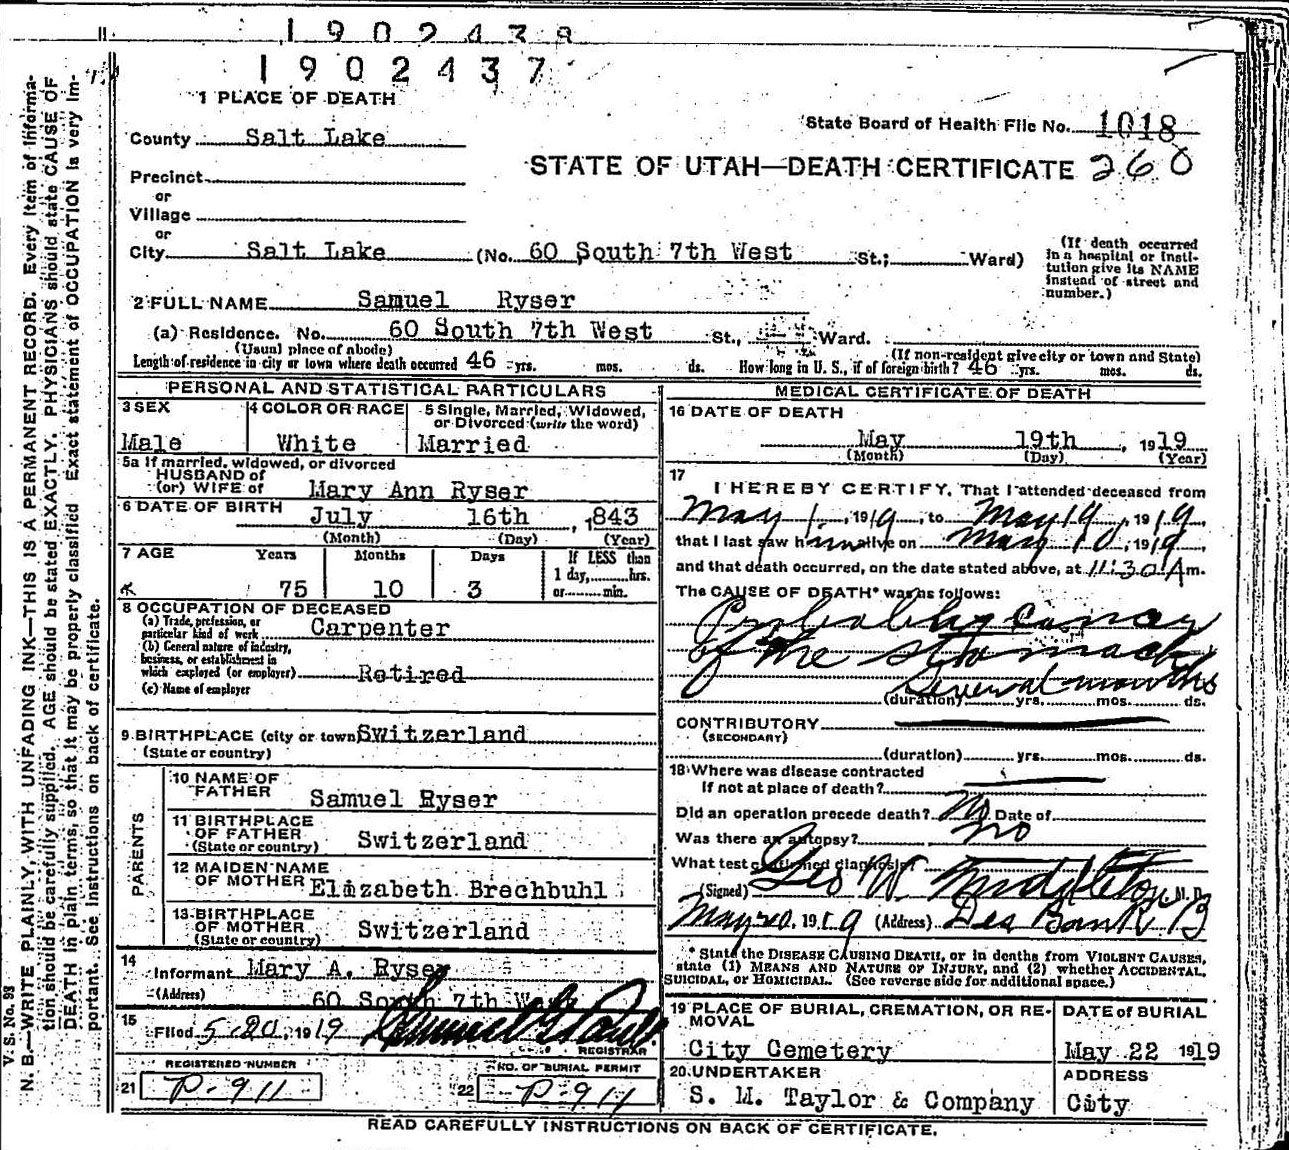 1902438
1902437
1 PLACE OF DEATH
State Board of Health File No. 1018
County Salt Lake
STATE OF UTAH—DEATH CERTIFICATE 260
Precinct
or
Village
or
City Salt Lake (No. 60 South 7th West St.; Ward)
(If death occurred in a hospital or institution give its NAME instead of street and number.)
2 FULL NAME Samuel Ryser
(a) Residence. No. 60 South 7th West St., Ward.
(Usual place of abode) (If non-resident give city or town and State)
Length of residence in city or town where death occurred 46 yrs. mos. ds. How long in U. S., if of foreign birth? 46 yrs. mos. ds.
PERSONAL AND STATISTICAL PARTICULARS
3 SEX 4 COLOR OR RACE 5 Single, Married, Widowed, or Divorced (write the word)
Male White Married
5a If married, widowed, or divorced
HUSBAND of
(or) WIFE of Mary Ann Ryser
6 DATE OF BIRTH July 16th, 1843
(Month) (Day) (Year)
7 AGE Years Months Days If LESS than
1 day, hrs.
75 10 3 or min.
8 OCCUPATION OF DECEASED
(a) Trade, profession, or
particular kind of work Carpenter
(b) General nature of industry,
business, or establishment in
which employed (or employer) Retired
(c) Name of employer
9 BIRTHPLACE (city or town) Switzerland
(State or country)
PARENTS
10 NAME OF
FATHER Samuel Ryser
11 BIRTHPLACE
OF FATHER
(State or country) Switzerland
12 MAIDEN NAME
OF MOTHER Elizabeth Brechbuhl
13 BIRTHPLACE
OF MOTHER
(State or country) Switzerland
14
Informant Mary A. Ryser
(Address) 60 South 7th West
15
Filed 5-20, 1919
REGISTRAR
REGISTERED NUMBER NO. OF BURIAL PERMIT
21 P-911 22 P-911
MEDICAL CERTIFICATE OF DEATH
16 DATE OF DEATH
May 19th, 1919
(Month) (Day) (Year)
17
I HEREBY CERTIFY, That I attended deceased from
May 1, 1919, to May 19, 1919,
that I last saw him alive on May 10, 1919,
and that death occurred, on the date stated above, at 11:30 A m.
The CAUSE OF DEATH* was as follows:
Probably cancer
of the stomach
Several months
(duration) yrs. mos. ds.
CONTRIBUTORY
(SECONDARY)
(duration) yrs. mos. ds.
18 Where was disease contracted
If not at place of death?
Did an operation precede death? No Date of
Was there an autopsy? no
What test confirmed diagnosis?
(Signed) Geo W. Middleton, M. D.
May 20, 1919 (Address) Des Bank B
* State the DISEASE CAUSING DEATH, or in deaths from VIOLENT CAUSES,
state (1) MEANS AND NATURE OF INJURY, and (2) whether ACCIDENTAL,
SUICIDAL, or HOMICIDAL. (See reverse side for additional space.)
19 PLACE OF BURIAL, CREMATION, OR REMOVAL DATE of BURIAL
City Cemetery May 22 1919
20 UNDERTAKER ADDRESS
S. M. Taylor & Company City
READ CAREFULLY INSTRUCTIONS ON BACK OF CERTIFICATE.
V. S. No. 98
N. B.—WRITE PLAINLY, WITH UNFADING INK—THIS IS A PERMANENT RECORD. Every item of information should be carefully supplied. AGE should be stated EXACTLY. PHYSICIANS should state CAUSE OF DEATH in plain terms, so that it may be properly classified. Exact statement of OCCUPATION is very important. See instructions on back of certificate.